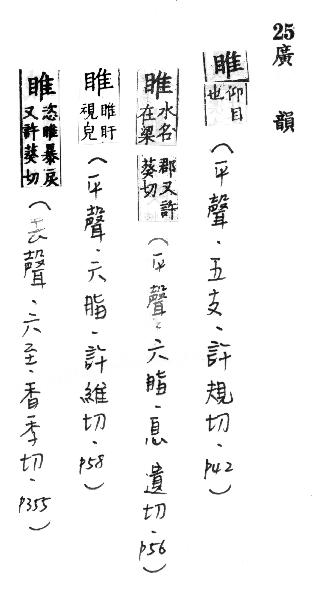 25廣韻
睢仰目也(平聲.五支.許規切.p42)
睢水名在梁郡又許葵切(平聲.六脂.息遺切.p56)
睢睢盱視皃(平聲.六脂.許維切.p58)
睢恣睢暴戾又許葵切(去聲.六至.香季切.p355)